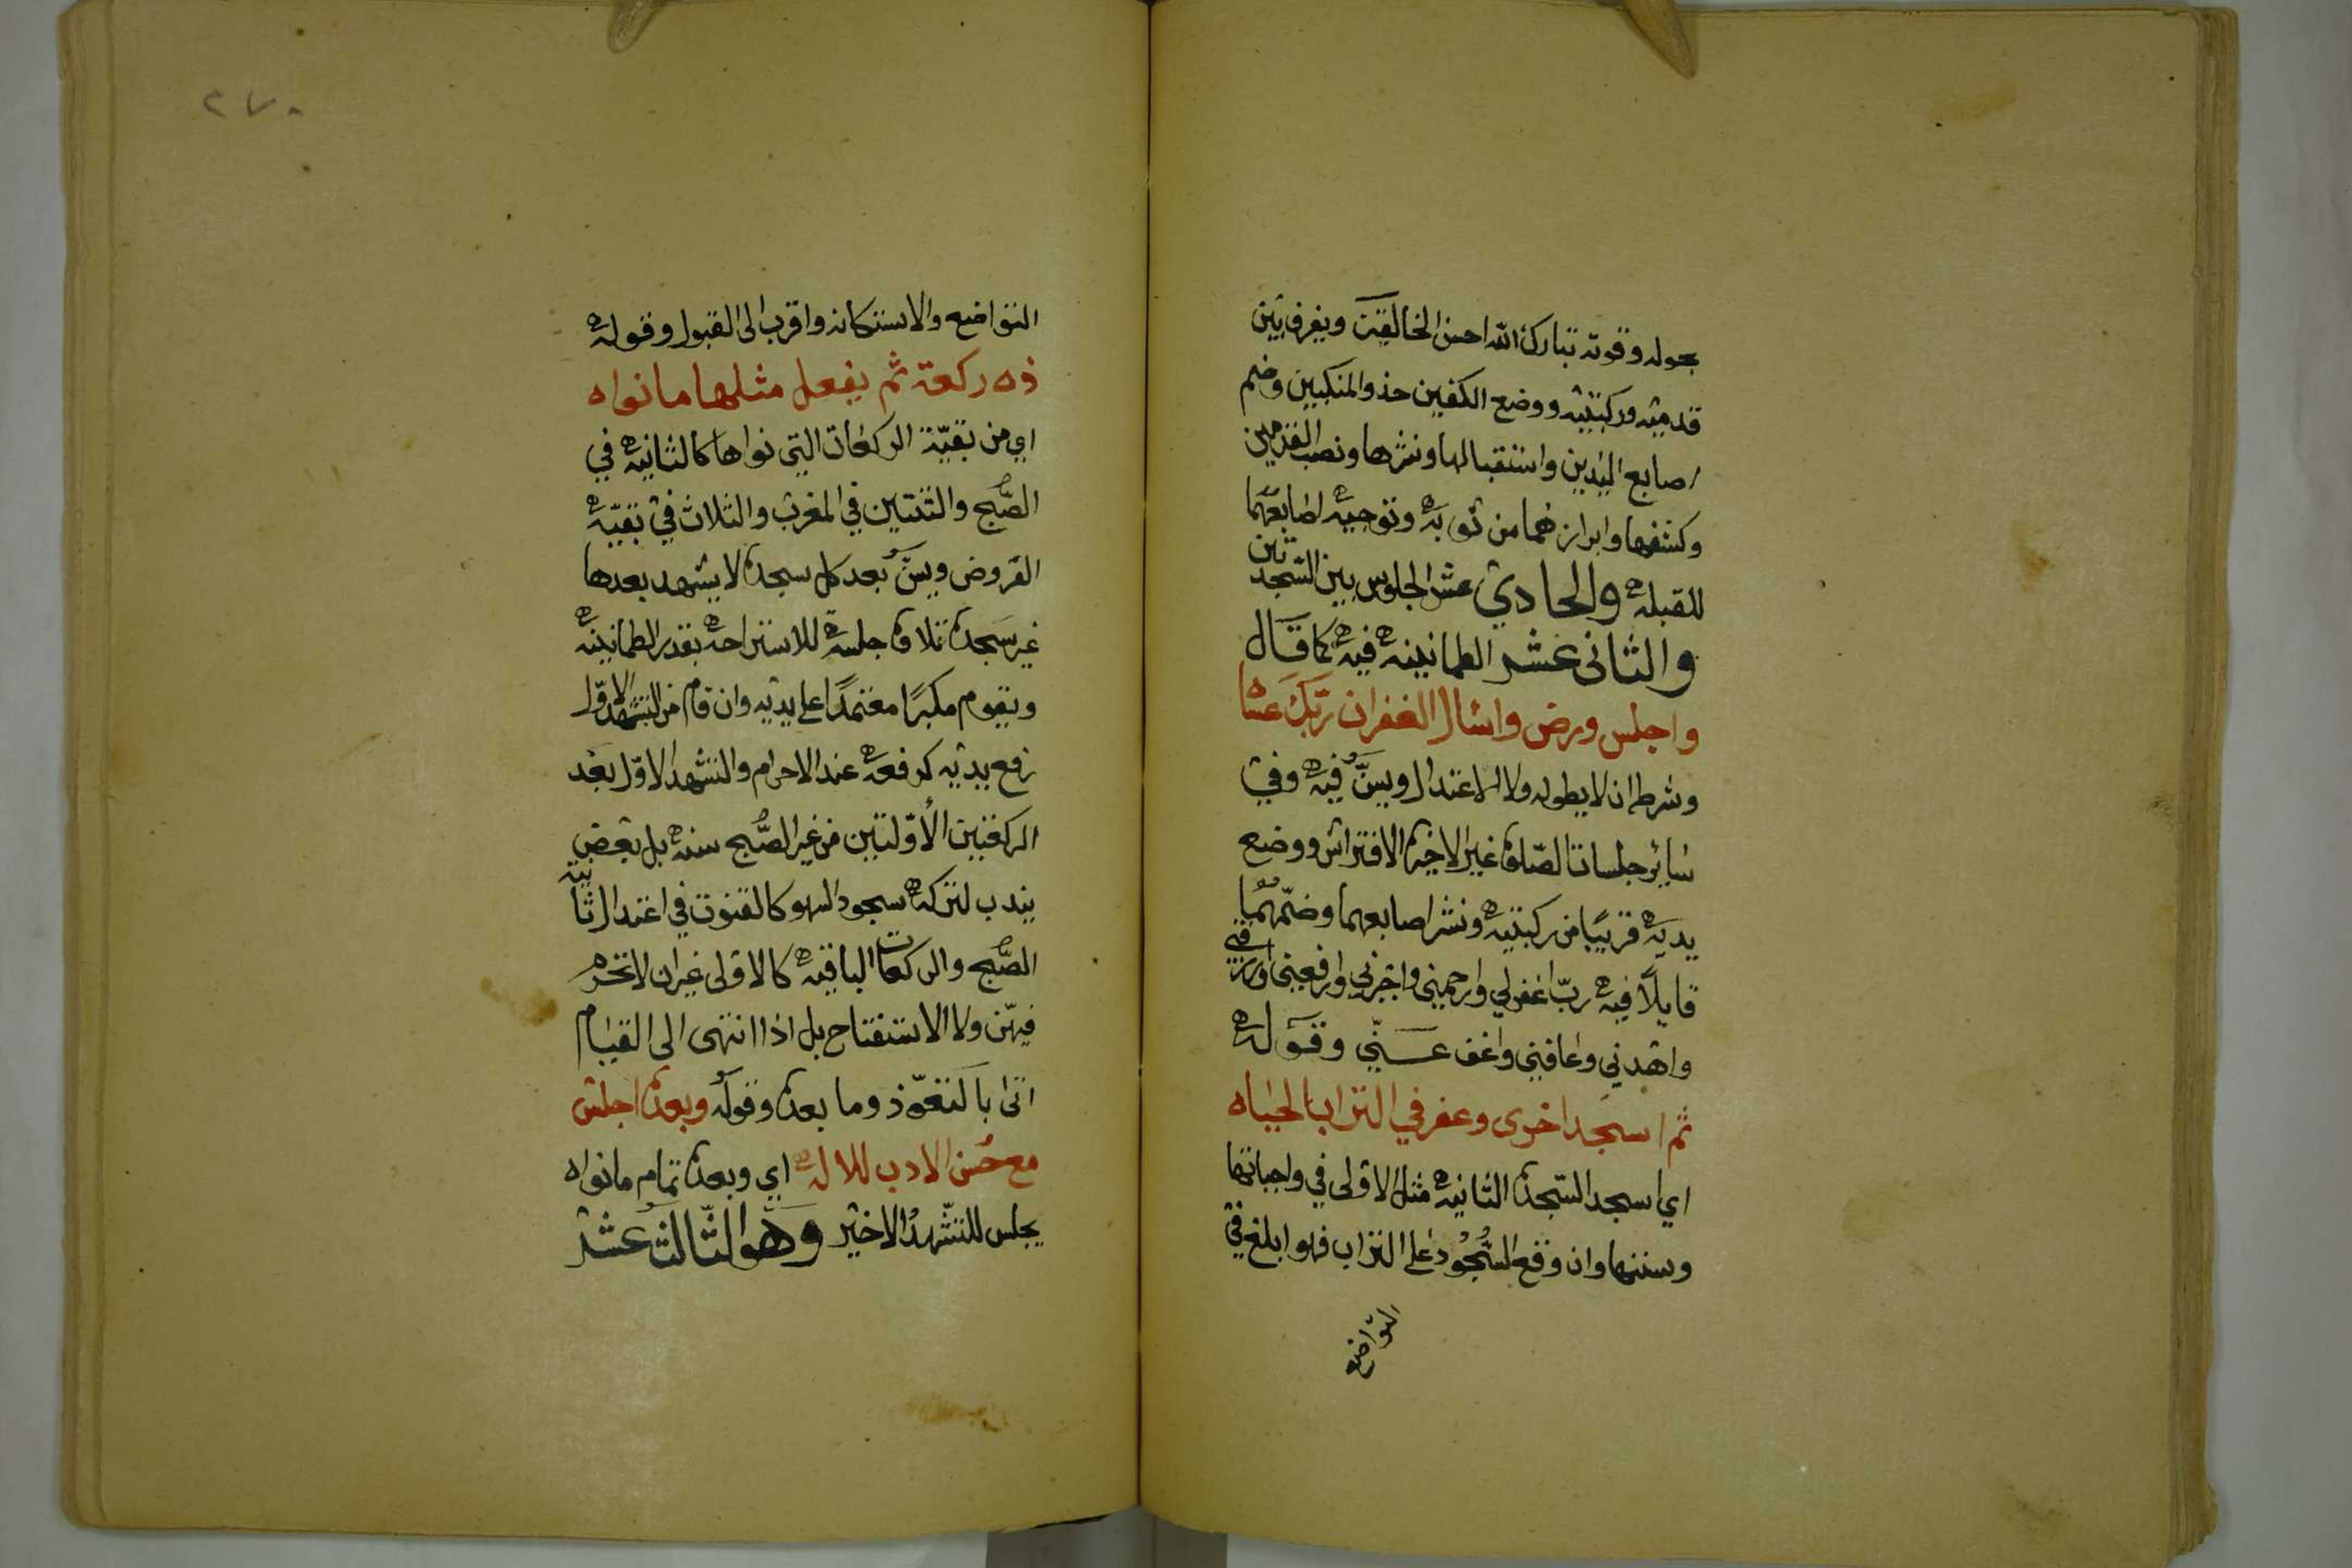 بحوله وقوته تبارك الله احسن الخالقين ويفرق بين
قدميه وركبتيه ووضع الكفين حذو المنكبين وضم
اصابع اليدين واستقبالها ونشرها ونصب القدمين
وكشفها وابرازهما من ثوبه وتوجيه اصابعهما
للقبله والحادي عشر الجلوس بين السجدتين
والثانى عشر الطمانينه فيه كما قال
واجلس ورض واسال الغفران ربك عسا
وشرطه ان لا يطوله ولا الاعتدال ويسن فيه وفي
سائر جلسات الصلاة غير الاخيرة الافتراش ووضع
يديه قريبًا من ركبتيه ونشر اصابعهما وضمهما
قايلًا فيه رب اغفر لي وارحمني واجبرني وارفعني وارزقني
واهدني وعافني واعف عني وقوله
ثم اسجد اخرى وعفر في التراب الحياه
اي اسجد السجدة الثانيه مثل الاولى في واجباتها
وسننها وان وقع السجود على التراب فهو ابلغ في
التواضع
٢٧٠
التواضع والاستكانه واقرب الى القبول وقوله
ذه ركعة ثم يفعل مثلها مانواه
اي من بقية الركعات التي نواها كالثانيه في
الصبح والثنتين في المغرب والثلاث في بقيه
الفروض ويسن بعد كل سجدة لا يتشهد بعدها
غير سجدة تلاوة جلسة للاستراحه بقدر الطمانينه
ويقوم مكبرًا معتمدًا على يديه وان قام من التشهد الاول
رفع يديه كرفعه عند الاحرام والتشهد الاول بعد
الركعتين الأولتين من غير الصبح سنه بل بعض
يندب لتركه سجود السهو كالقنوت في اعتدال ثانية
الصبح والركعات الباقيه كالاولى غير ان لا تحرم
فيهن ولا الاستفتاح بل اذا انتهى الى القيام
اتى بالتعوذ وما بعده وقوله وبعده اجلس
مع حسن الادب للاله اي وبعده تمام مانواه
يجلس للتشهد الاخير وهو الثالث عشر